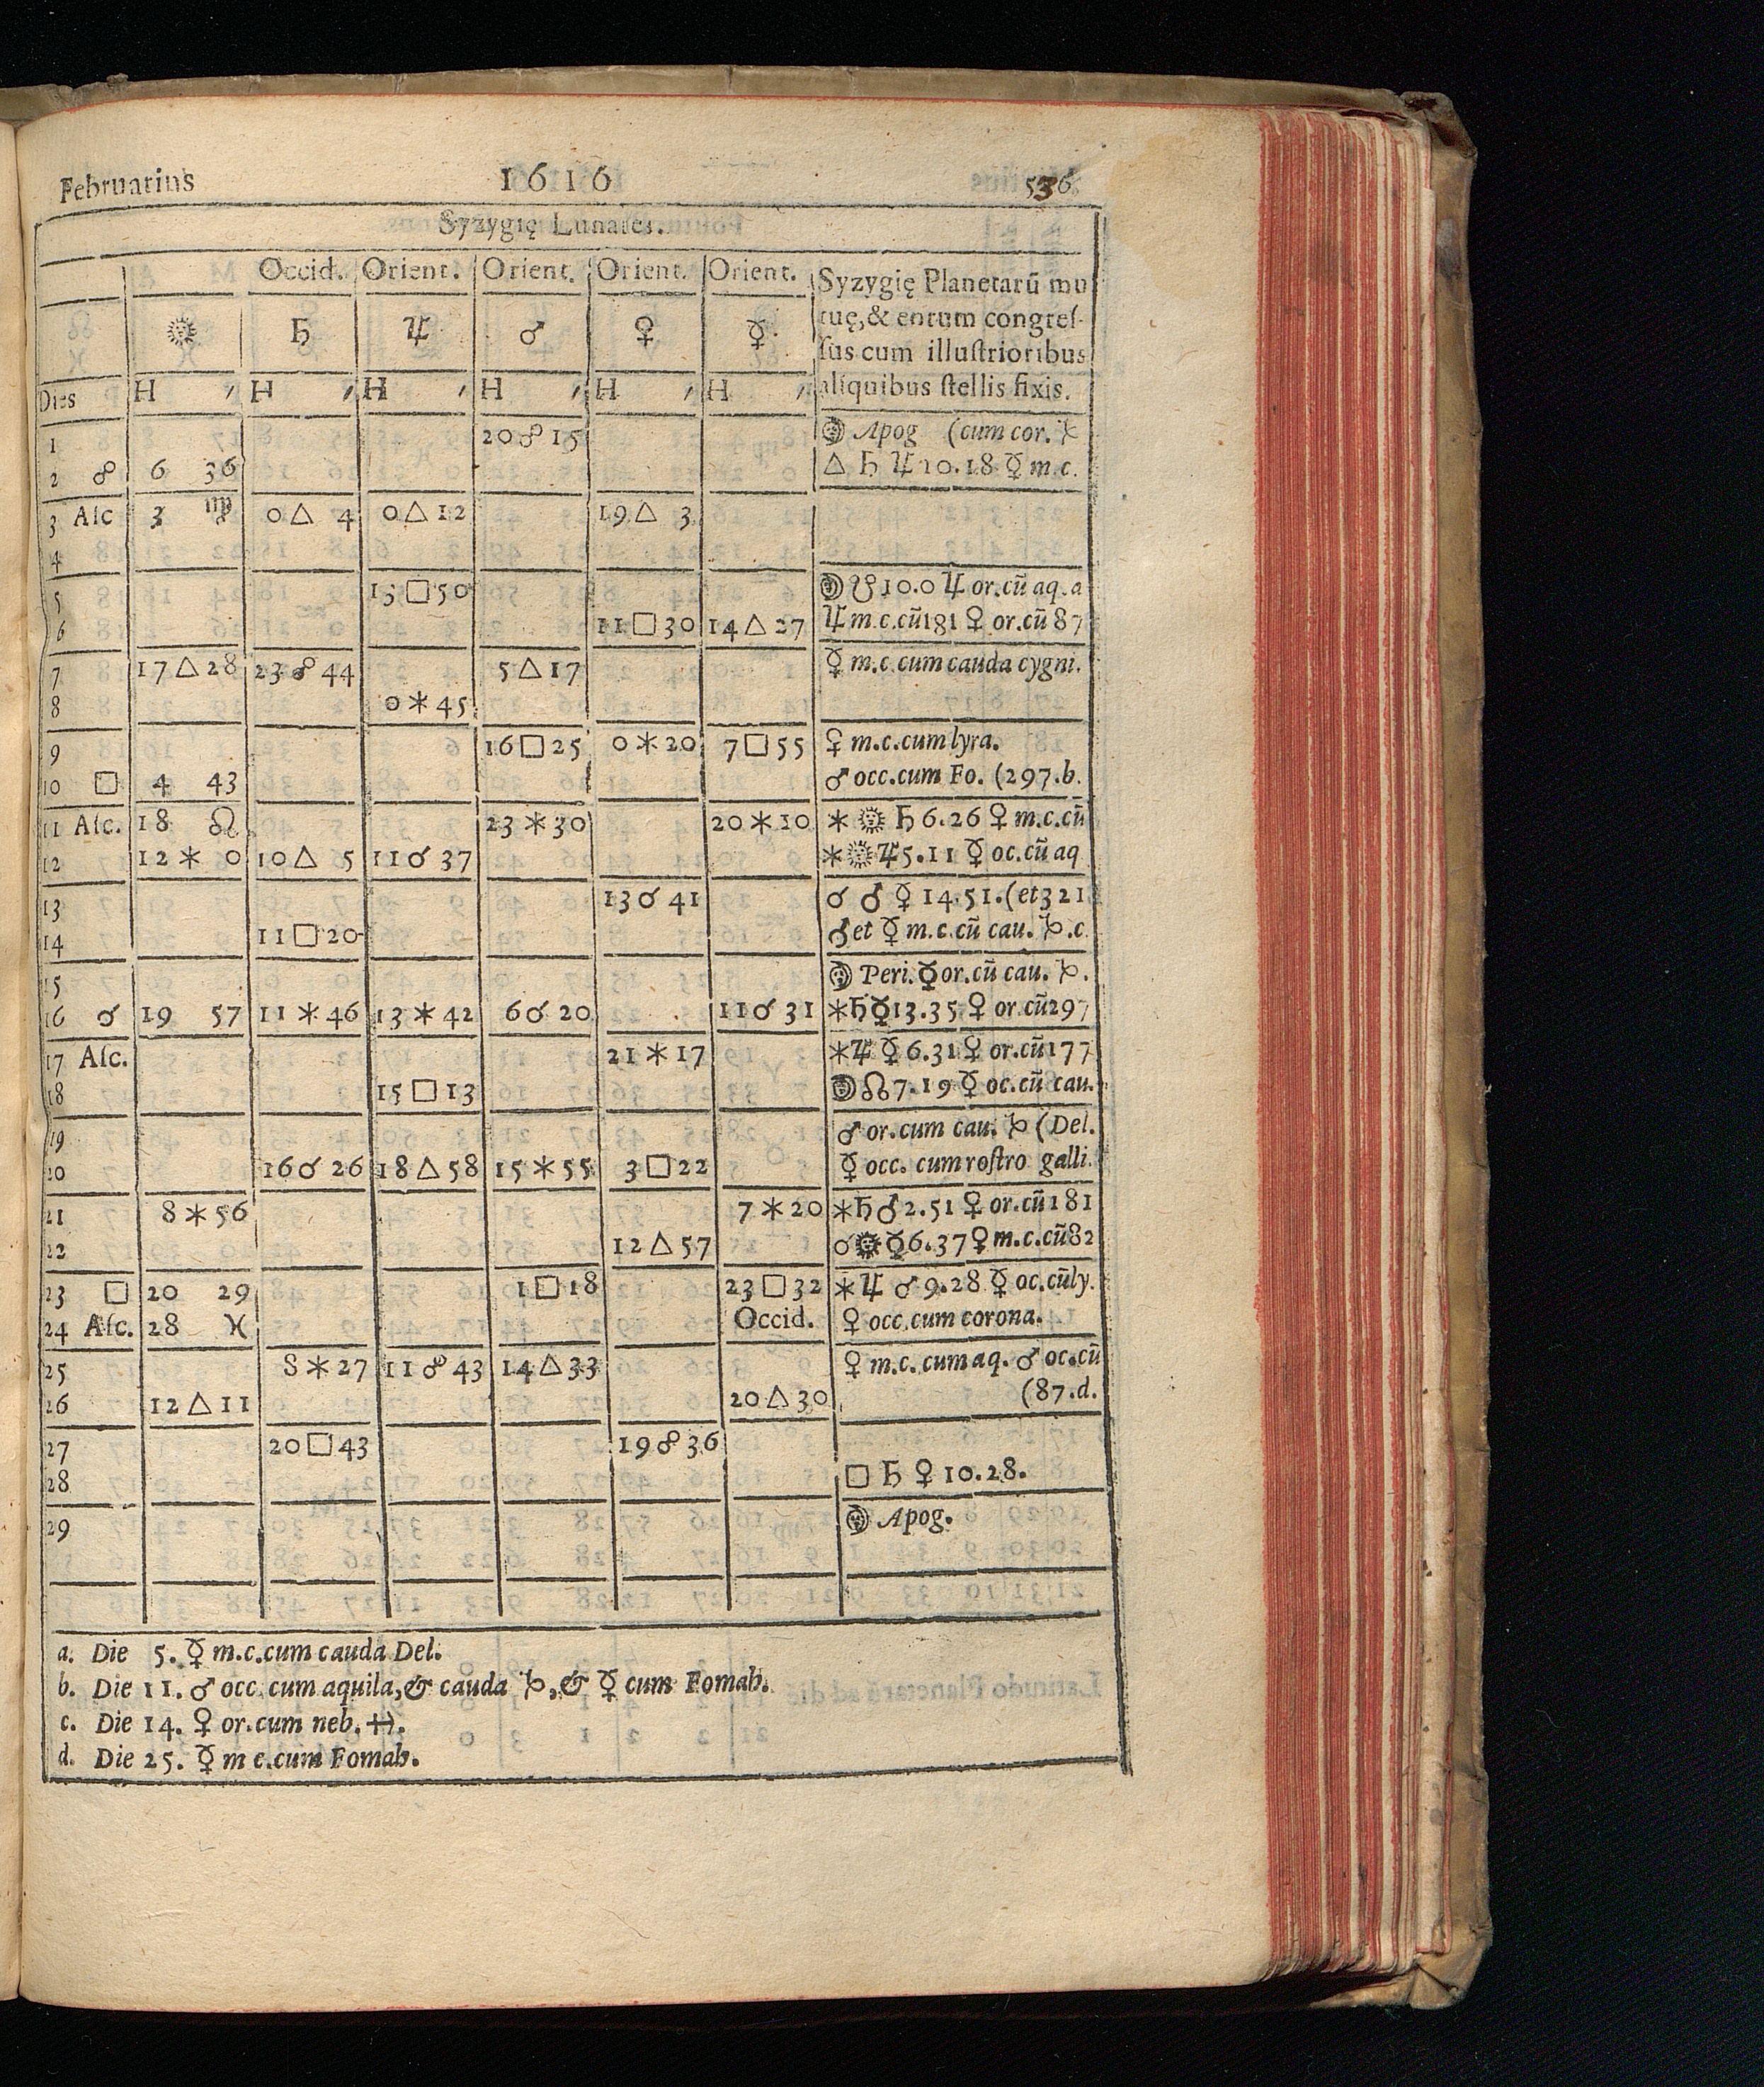 Februarius 1616 536
Syzygię Lunares.
Occid. Orient. Orient. Orient. Orient. Syzygię Planetarū mu
☉ ♄ ♃ ♂ ♀ ☿ tuę, & eorum congres-
ſus cum illuſtrioribus
Dies H ′ H ′ H ′ H ′ H ′ H ′ aliquibus ſtellis fixis.
1 20 ☍ 15 ☽ Apog (cum cor.
2 ☍ 6 36 △ ♄ ♃ 20.18 ☿ m.c.
3 Aſc 3 ♍ 0 △ 4 0 △ 12 19 △ 3
4
5 13 □ 50 ☽ ☋ 10.0 ♃ or.cū aq.a
6 11 □ 30 14 △ 27 ♃ m.c.cū 181 ♀ or.cū 87
7 17 △ 28 23 ☍ 44 5 △ 17 ☿ m.c.cum cauda cygni.
8 0 ⚹ 45
9 16 □ 25 0 ⚹ 20 7 □ 55 ♀ m.c.cum lyra.
10 □ 4 43 ♂ occ.cum Fo. (297.b.
11 Aſc. 18 ♌ 23 ⚹ 30 20 ⚹ 10 ⚹ ☉ ♄ 6.26 ♀ m.c.cū
12 12 ⚹ 0 10 △ 5 11 ☌ 37 ⚹ ☉ ♃ 5.11 ☿ oc.cū aq
13 13 ☌ 41 ☌ ♂ ☿ 14.51. (et 321
14 11 □ 20 ♂ et ☿ m.c.cū cau. ♑.c.
15 ☽ Peri. ☿ or.cū cau. ♑.
16 ☌ 19 57 11 ⚹ 46 13 ⚹ 42 6 ☌ 20 11 ☌ 31 ⚹ ♄ ☿ 13.35 ♀ or.cū 297
17 Aſc. 21 ⚹ 17 ⚹ ♃ ☿ 6.31 ♀ or.cū 177
18 15 □ 13 ☽ ☊ 7.19 ☿ oc.cū cau.
19 ♂ or.cum cau. ♑ (Del.
20 16 ☌ 26 18 △ 58 15 ⚹ 55 3 □ 22 ☿ occ. cum roſtro galli.
21 8 ⚹ 56 7 ⚹ 20 ⚹ ♄ ♂ 2.51 ♀ or.cū 181
22 12 △ 57 ☌ ☉ ☿ 6.37 ♀ m.c.cū 82
23 □ 20 29 1 □ 18 23 □ 32 ⚹ ♃ ♂ 9.28 ☿ oc.cū ly.
24 Aſc. 28 ♓ Occid. ♀ occ.cum corona.
25 8 ⚹ 27 11 ☍ 43 14 △ 33 ♀ m.c. cum aq. ♂ oc.cū
26 12 △ 11 20 △ 30 (87.d.
27 20 □ 43 19 ☍ 36
28 □ ♄ ♀ 10.28.
29 ☽ Apog.
a. Die 5. ☿ m.c.cum cauda Del.
b. Die 11. ♂ occ.cum aquila, & cauda ♑, & ☿ cum Fomah.
c. Die 14. ♀ or.cum neb. ♐.
d. Die 25. ☿ m c.cum Fomah.